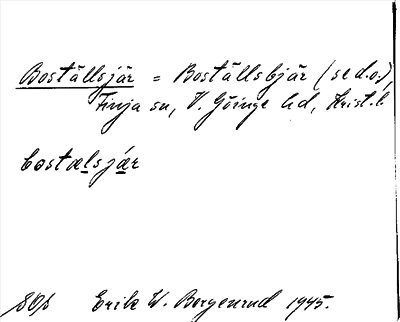 Boställsjär = Boställsbjär (se d.o.),
Finja sn, V. Göinge hd, Krist. l.
bostælsjǽr
SOA Erik W. Borgenrud 1945.